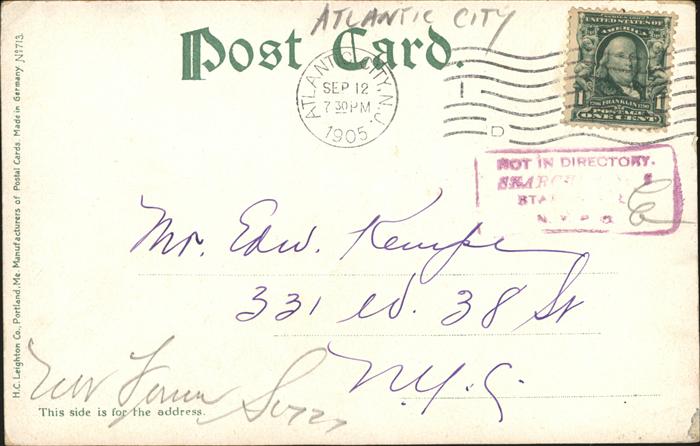 ATLANTIC CITY
Post Card.
ATLANTIC CITY, N.J.
SEP 12
7 30 PM
1905
I
D
UNITED STATES OF
AMERICA
1 FRANKLIN 1
POSTAGE
ONE CENT
NOT IN DIRECTORY.
N.Y.P.O.
Mr. Edw. Kempe
331 W. 38 St
N.Y.C.
This side is for the address.
H.C. Leighton Co., Portland, Me. Manufacturers of Postal Cards. Made in Germany Nº 713.